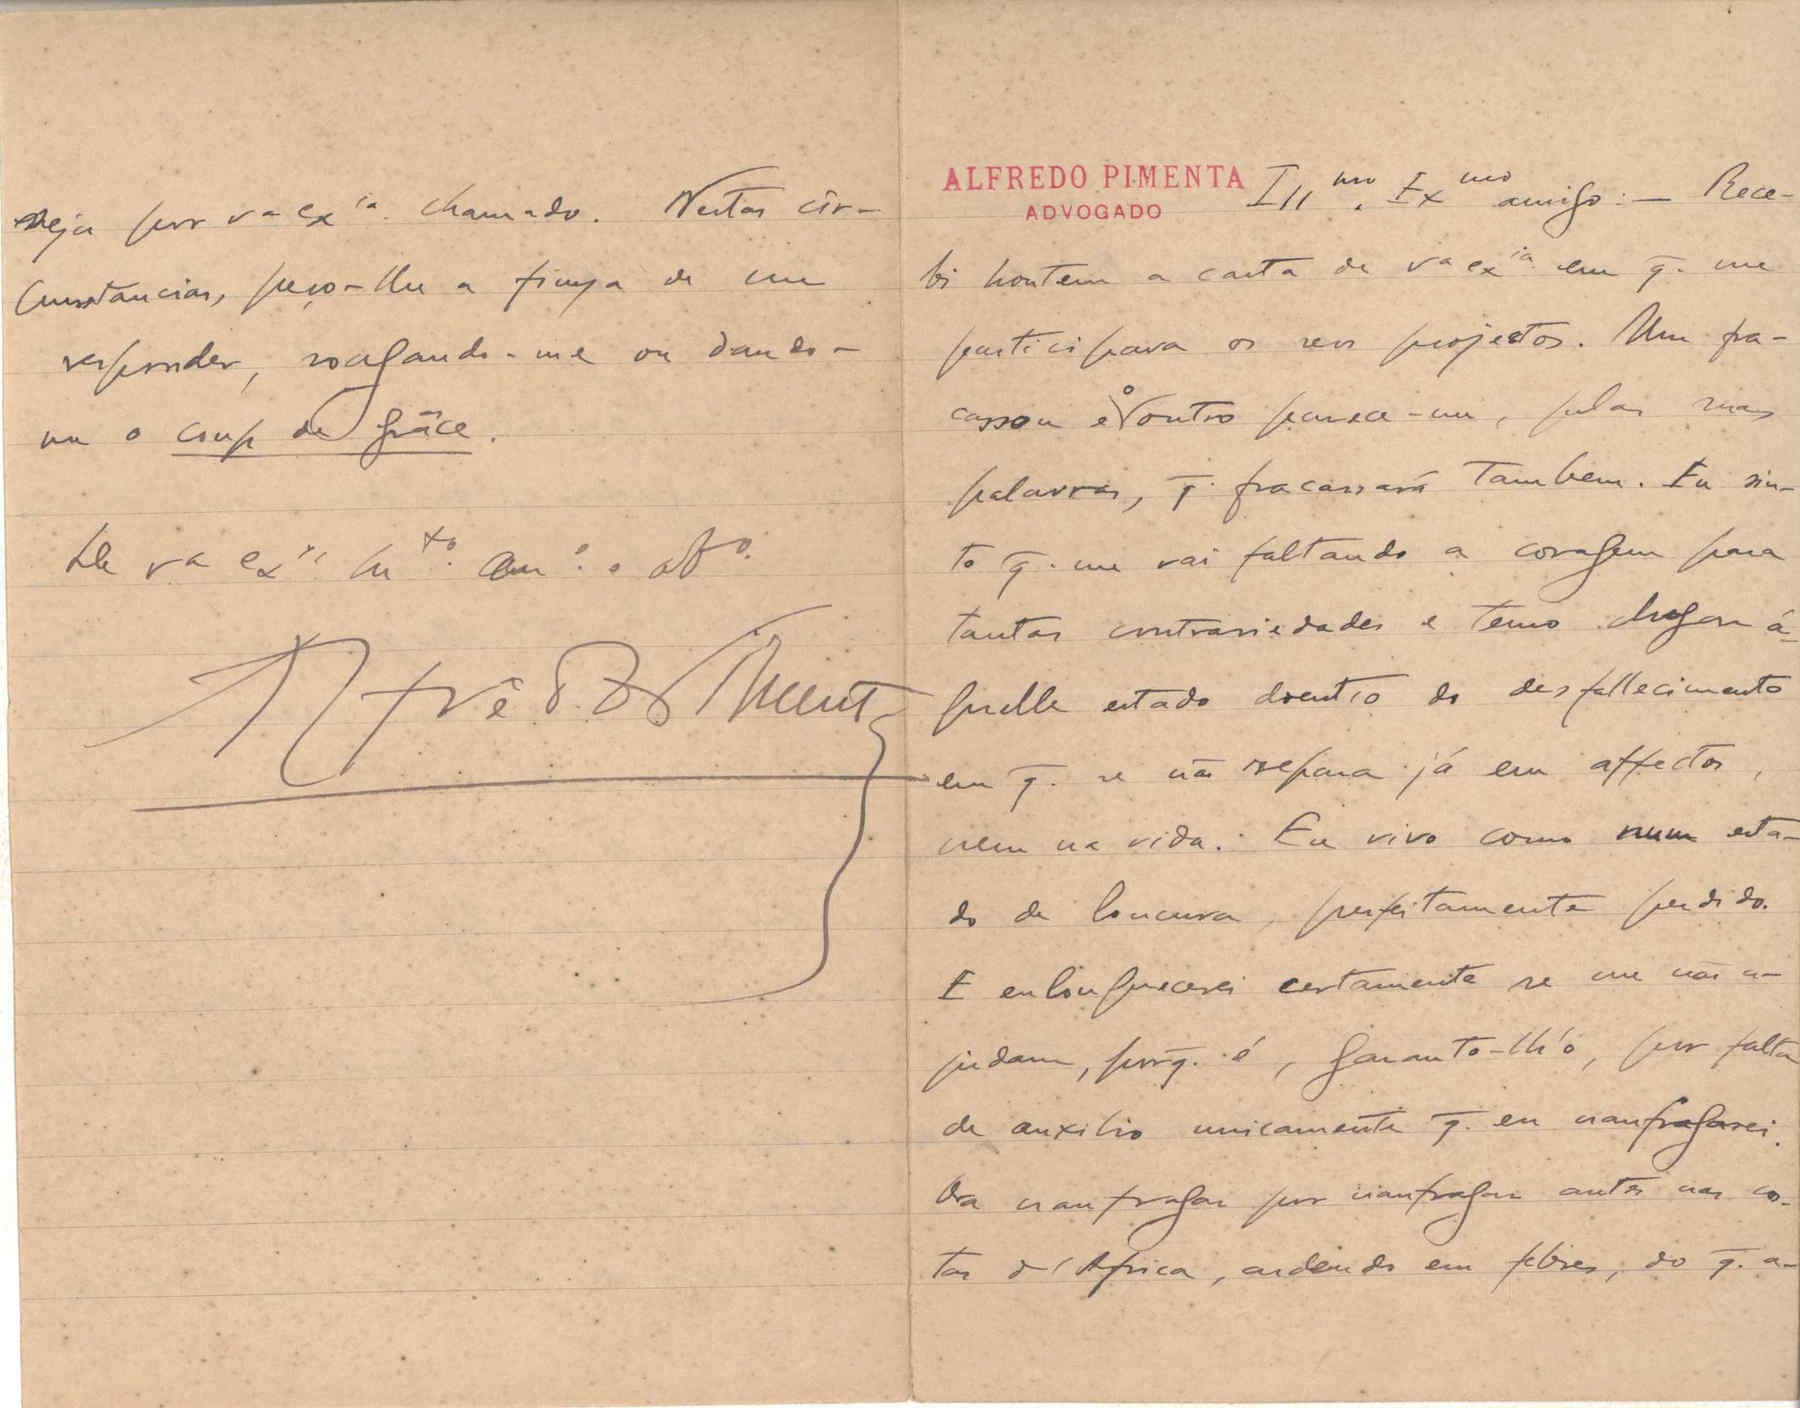 ALFREDO PIMENTA
ADVOGADO
Ill.mo Ex.mo amigo: — Rece-
bi hontem a carta de va exia em q. me
participava os seus projectos. Um fra-
cassou e o outro parece-me, pelas suas
palavras, q. fracassará tambem. Eu sin-
to q. me vai faltando a coragem para
tantas contrariedades e temo chegar á-
quelle estado doentio do desfallecimento
em q. se não repara já em affectos,
nem na vida. Eu vivo como num esta-
do de loucura, perfeitamente perdido.
E enlouquecerei certamente se me não a-
judam, porq. é, garanto-lh'o, por falta
de auxilio unicamente q. eu naufragarei.
Ora naufragar por naufragar antes nas cos-
tas d'Africa, ardendo em febres, do q. a-
seja por va exia chamado. Nestas cir-
cunstancias, peço-lhe a fineza de me
responder, rasgando-me ou dando-
me o coup de grâce.
De va exia mto. amo. e obo.
Alfrêdo Pimenta